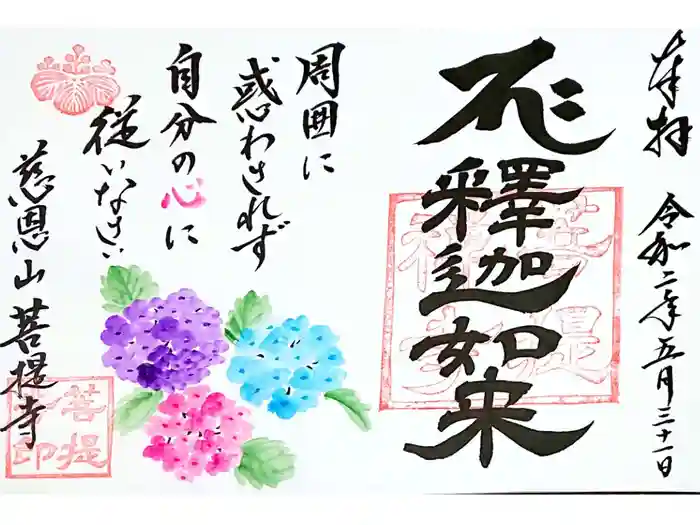 奉拝
令和二年五月三十一日
釋迦如来
周囲に
惑わされず
自分の心に
従いなさい
慈恩山 菩提寺
菩提
印